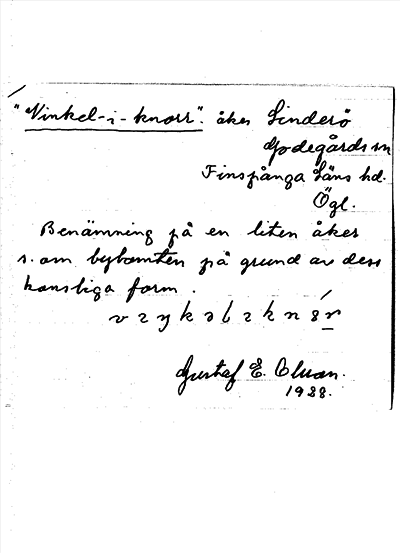 "Vinkel-i-knorr". åker Sinderö
Godegårds sn
Finspånga Läns hd.
Ögl.
Benämning på en liten åker
s. om bytomten på grund av dess
konstiga form.
Gustaf E. Olson.
1928.